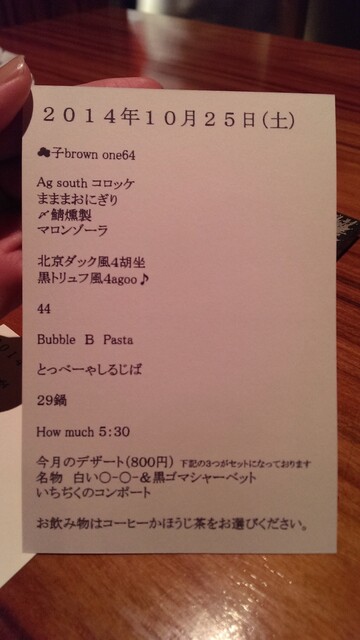 2014年10月25日(土)
♣子brown one64
Ag south コロッケ
まままおにぎり
〆鯖燻製
マロンゾーラ
北京ダック風4胡坐
黒トリュフ風4agoo♪
44
Bubble B Pasta
とっぺーゃしるじぱ
29鍋
How much 5:30
今月のデザート(800円) 下記の3つがセットになっております
名物 白い○-○-&黒ゴマシャーベット
いちぢくのコンポート
お飲み物はコーヒーかほうじ茶をお選びください。